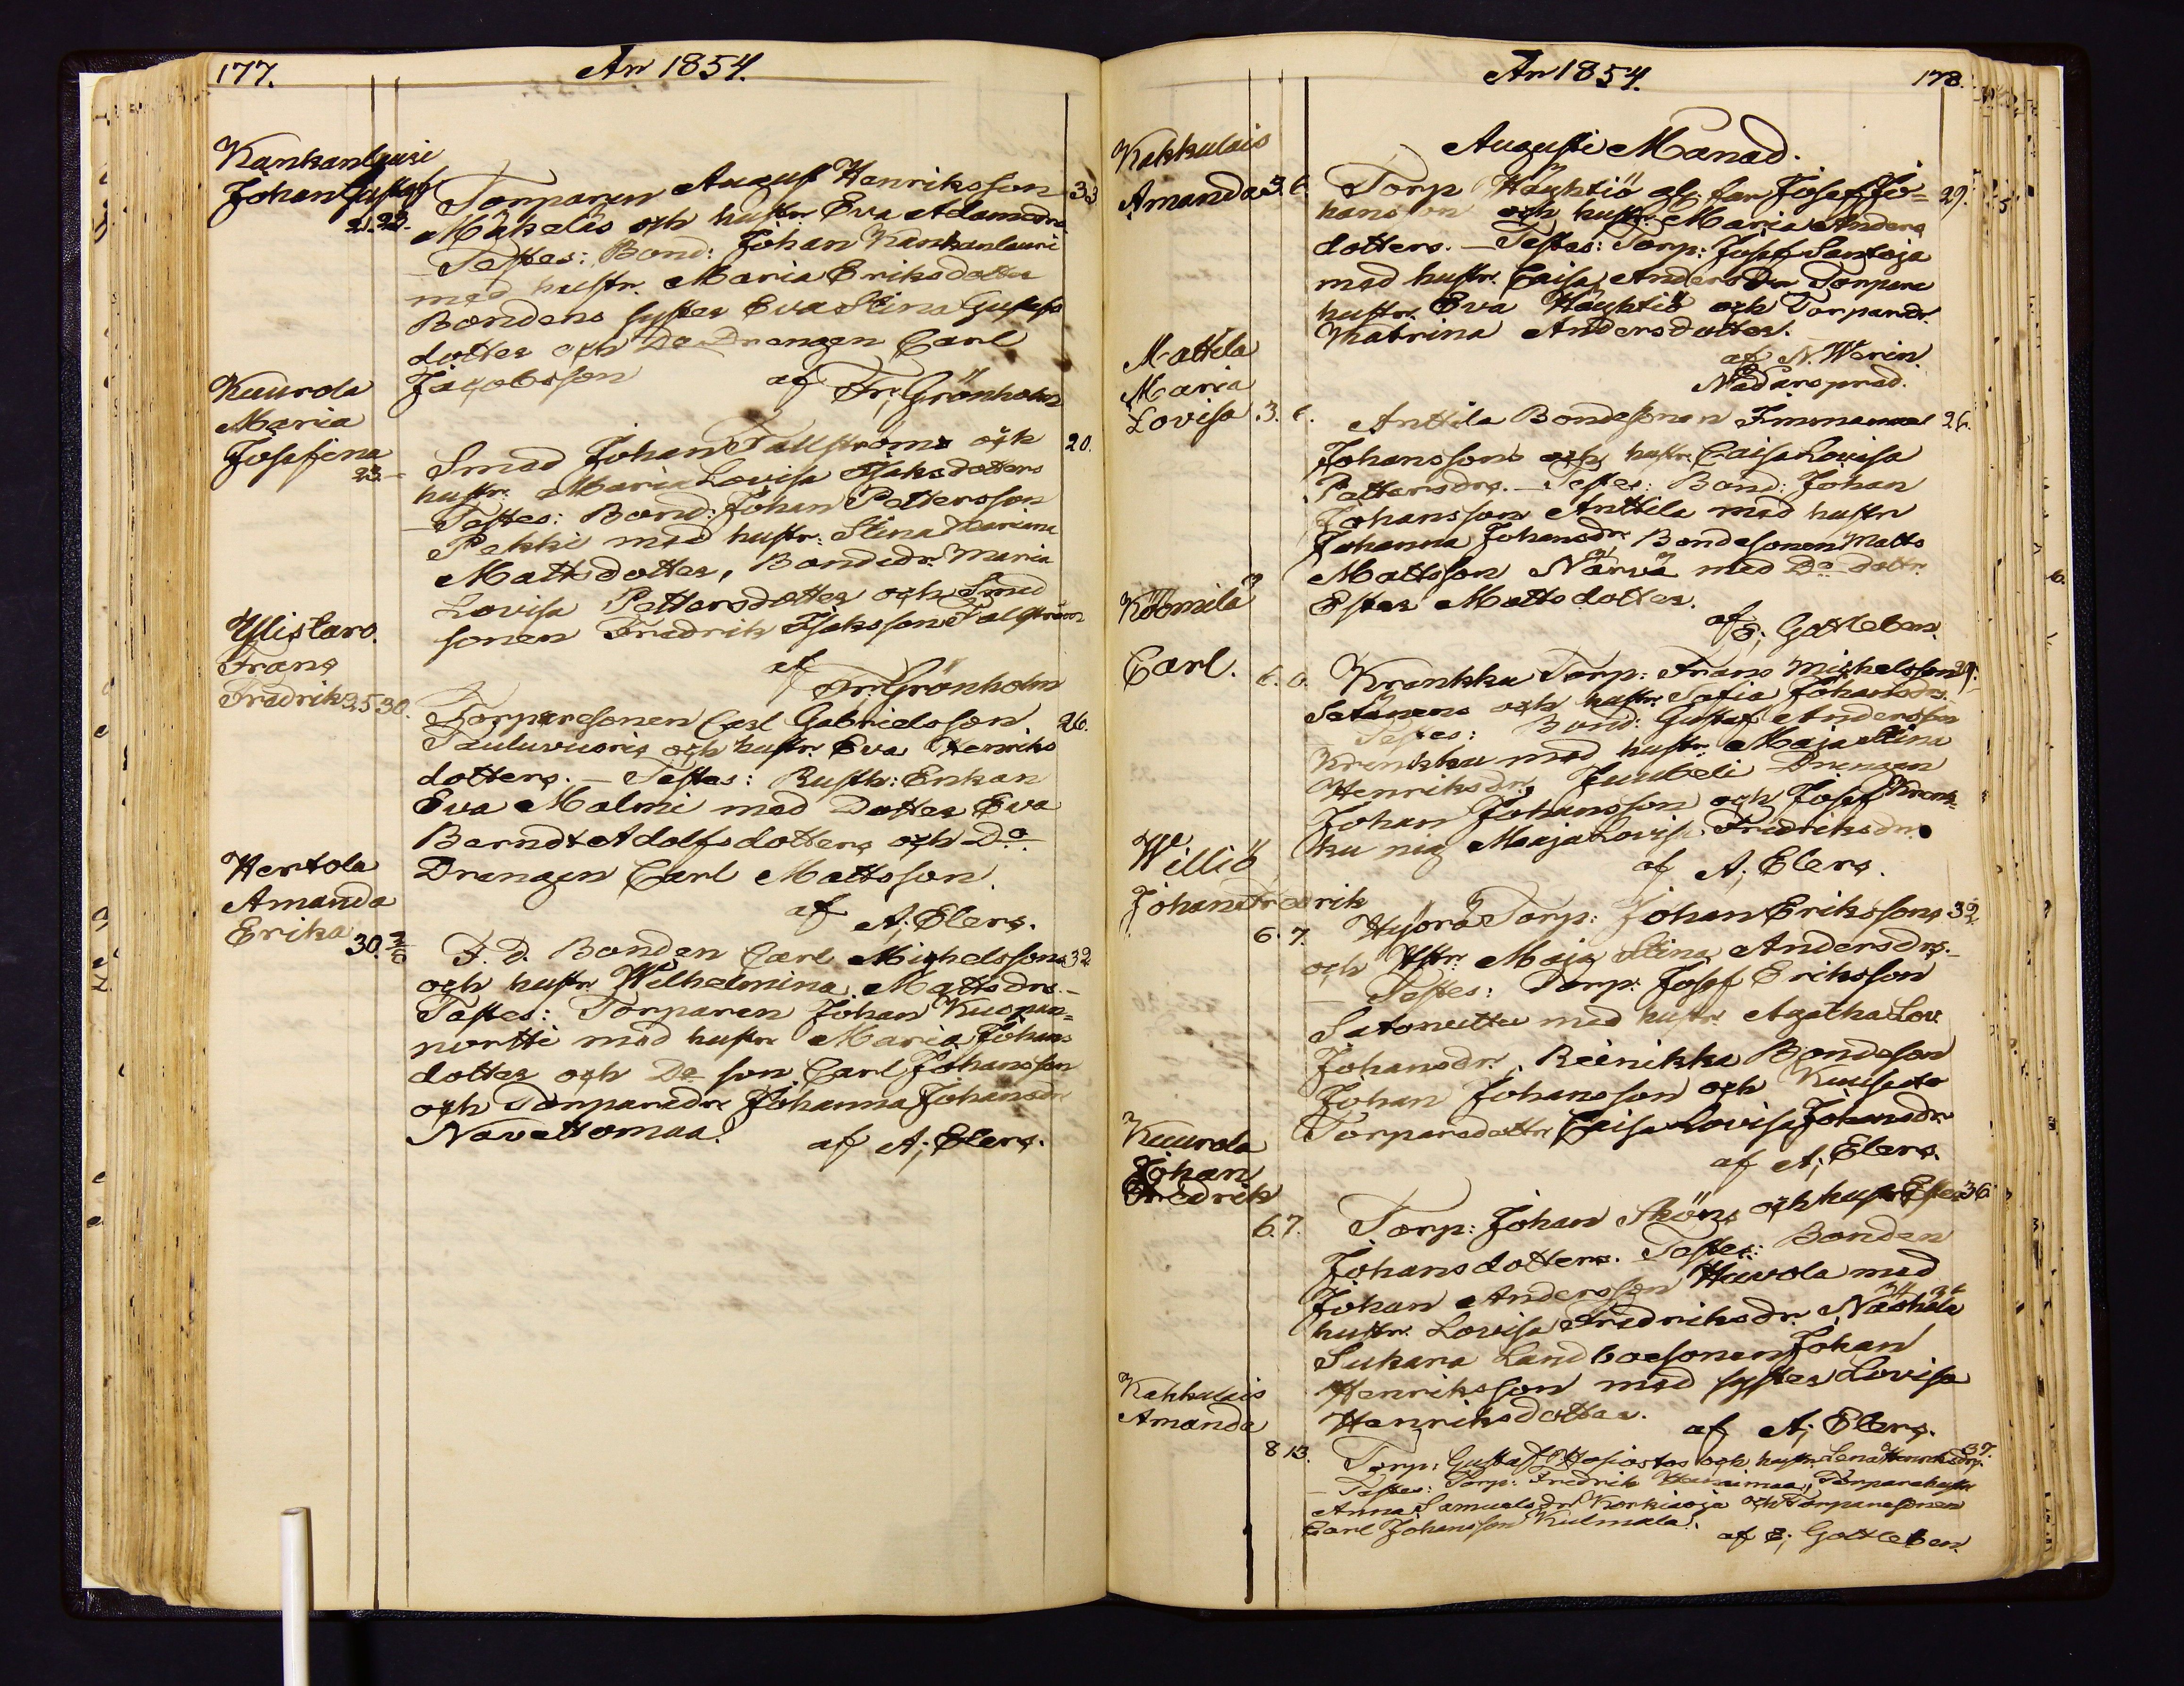 177. An 1854.
Kankanlauri
Johan Gustaf
21. 23.
Torparen August Henriksson 33
Mäkeläs och hustr. Eva Adamsdrs
Testes: Bond: Johan Kankanlauri
med hustr. Maria Eriksdotter
Bondens syster Eva Stina Gustafs
dotter och Do Drengen Carl
Jacobsson af Fr. Grönholm
Kuurola
Maria
Josefina
23. –
Smed Johan Tallströms och 20.
hustr: Maria Lovisa Isaksdotters
– Testes: Bond: Johan Pettersson
Pekki med hustr: Stina Mariana
Mattsdotter, Bondedr. Maria
Lovisa Pettersdotter och Smed
sonen Fredrik Isaksson Tallström
af
Fr. Grönholm
Ylistaro.
Frans
Fredrik 25 30.
Torparesonen Carl Gabrielsson 26.
Tauluvuoris och hustr. Eva Henriks
dotters. – Testes: Rusth: Enkan
Eva Malmi med Dotter Eva
Berndt Adolfsdotters och Do
Drengen Carl Mattsson.
af A; Elers.
Hertola
Amanda
Erika
30.
F. D. Bonden Carl Michelssons 32
och hustr. Wilhelmina Mattsdrs. –
Testes: Torparen Johan Kuopan=
portti med hustr. Maria Johans
dotter och Do son Carl Johansson
och Torparedr. Johanna Johansdr
Navettomaa. af A; Elers.
An 1854. 178.
Augusti Månad.
Kakkulais
Amanda 3. 6.
Torp Häyhtiö gf. far Josef Jo= 29.
hansson och hustr. Maria Anders
dotters. – Testes: Torp: Josef Santoja
med hustr. Caisa Andersdr Torpare
hustr. Eva Häyhtiö och Torparedr.
Khatrina Andersdotter.
af N. Werin.
Nådårspred.
Mattila
Maria
Lovisa 3. 6.
Anttila Bondesonen Immanuel 26.
Johanssons och hustr. Caisa Lovisa
Pettersdrs. – Testes: Bond: Johan
Johansson Anttila med hustr
Johanna Johansdr. Bondesonen Matts
Mattsson Närvä med Do dottr.
Ester Mattsdotter.
af E; Gottleben.
Köömilä
Carl. 6. 6.
Krenkku Torp: Frans Michelsson 29.
Satanens och hustr. Sofia Johansdrs.
Testes: Bond: Gustaf Andersson
Krenkku med hustr: Maja Stina
Henriksdr, Juubeli Drengen
Johan Johansson och Josef Krenk=
ku pig Maja Lovisa Fredriksdr.
af A; Elers.
Williö
Johan Fredrik
6. 7.
Hyörä Torp: Johan Erikssons 32
och Hstr. Maja Stina Andersdrs. –
– Testes: Torp: Josef Eriksson
Satovitta med hustr. Agatha Lov.
Johansdr., Reinikka Bondeson
Johan Johansson och Kuusisto
Torparedottr Caisa Lovisa Johansdr
af A; Elers.
Kuurola
Johan
Fredrik
6. 7.
Torp: Johan Sköns och hustr. Ester 36
Johansdotters. Testes: Bonden
Johan Andersson Havola med
hustr. Lovisa Fredriksdr.
Sukara Landboesonen Johan
Henriksson med syster Lovisa
Henriksdotter. af A; Elers.
Kakkulais
Amanda
8 13.
Torp: Gustaf Hopiostos och hustr. Lena Henricsdrs. 37.
– Testes: Torp: Fredrik Torparehustr
Anna Samuelsdr Korkiaoja och Torparesonen
Carl Johansson Kulmala. af E; Gottleben.